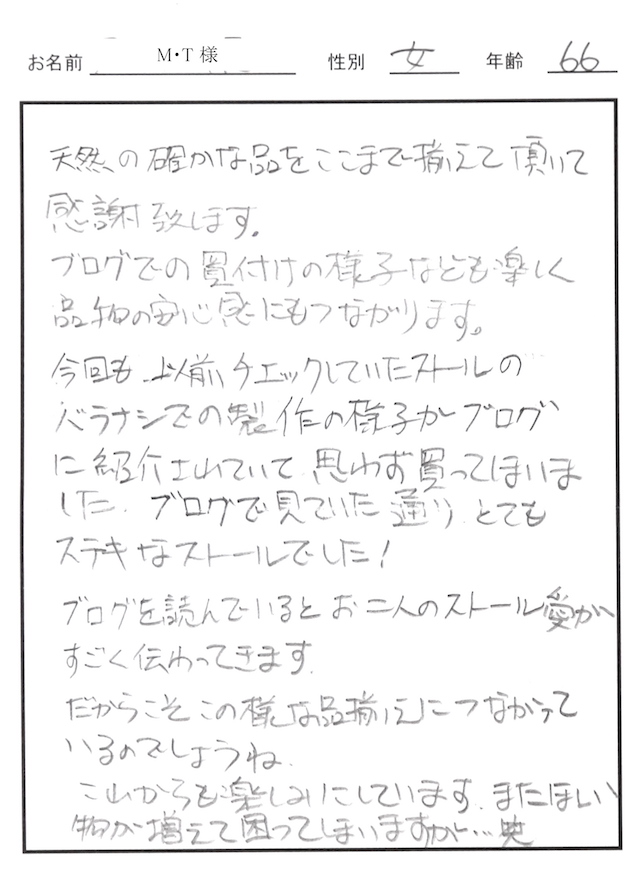 お名前 M・T 様 性別 女 年齢 66
天然の確かな品をここまで揃えて頂いて
感謝致します。
ブログでの買付けの様子なども楽しく
品物の安心感にもつながります。
今回も 以前チェックしていたストールの
バラナシでの製作の様子がブログ
に紹介されていて 思わず買ってしまいま
した. ブログで見ていた通り とても
ステキなストールでした!
ブログを読んでいると お二人のストール愛が
すごく伝わってきます.
だからこそ この様な品揃えにつながって
いるのでしょうね.
これからも楽しみにしています. またほしい
物が増えて困ってしまいますが…